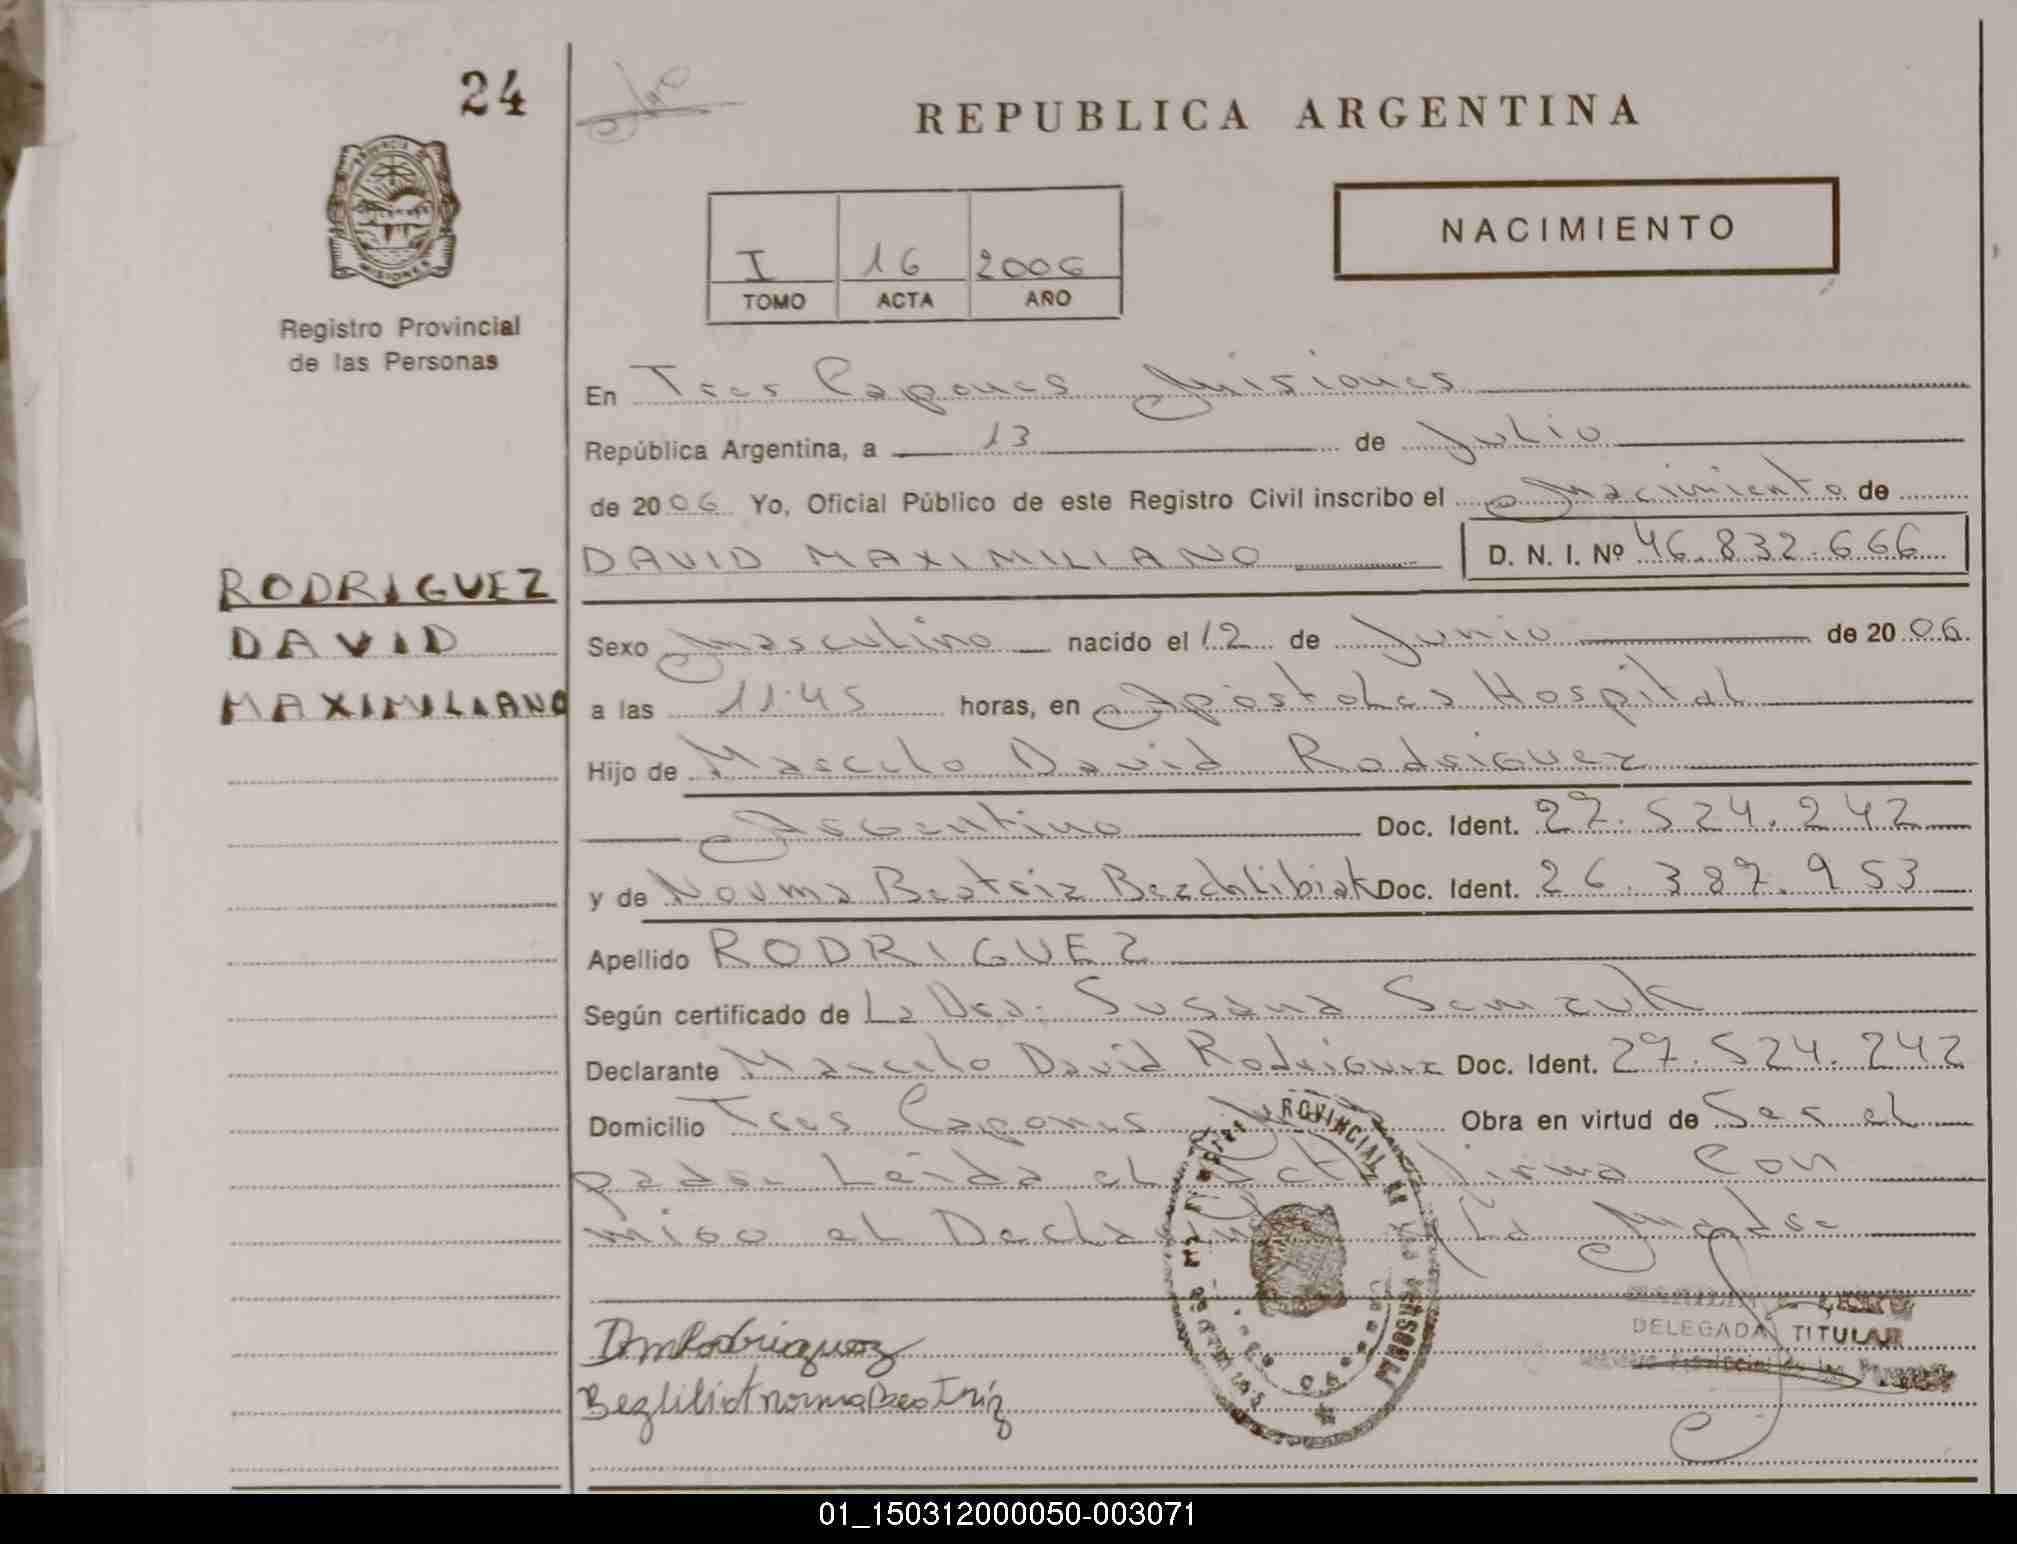 24
REPUBLICA ARGENTINA
PROVINCIA DE
MISIONES
NACIMIENTO
I 16 2006
TOMO ACTA AÑO
Registro Provincial
de las Personas
En Tres Capones Misiones
República Argentina, a 13 de Julio
de 2006 Yo, Oficial Público de este Registro Civil inscribo el Nacimiento de
DAVID MAXIMILIANO D. N. I. Nº 46.832.666
RODRIGUEZ
DAVID
MAXIMILIANO
Sexo Masculino nacido el 12 de Junio de 2006
a las 11:45 horas, en Apóstoles Hospital
Hijo de Marcelo David Rodriguez
Argentino Doc. Ident. 27.524.242
y de Norma Beatriz Bezdhlibiak Doc. Ident. 26.387.953
Apellido RODRIGUEZ
Según certificado de La Dra. Susana Semzuk
Declarante Marcelo David Rodriguez Doc. Ident. 27.524.242
Domicilio Tres Capones Obra en virtud de Ser el
padre Leída el Acta firma Con
migo el Declarante y La Madre
DELEGADA TITULAR
Registro Provincial de las Personas
DmRodriguez
norma Beatriz
01_150312000050-003071